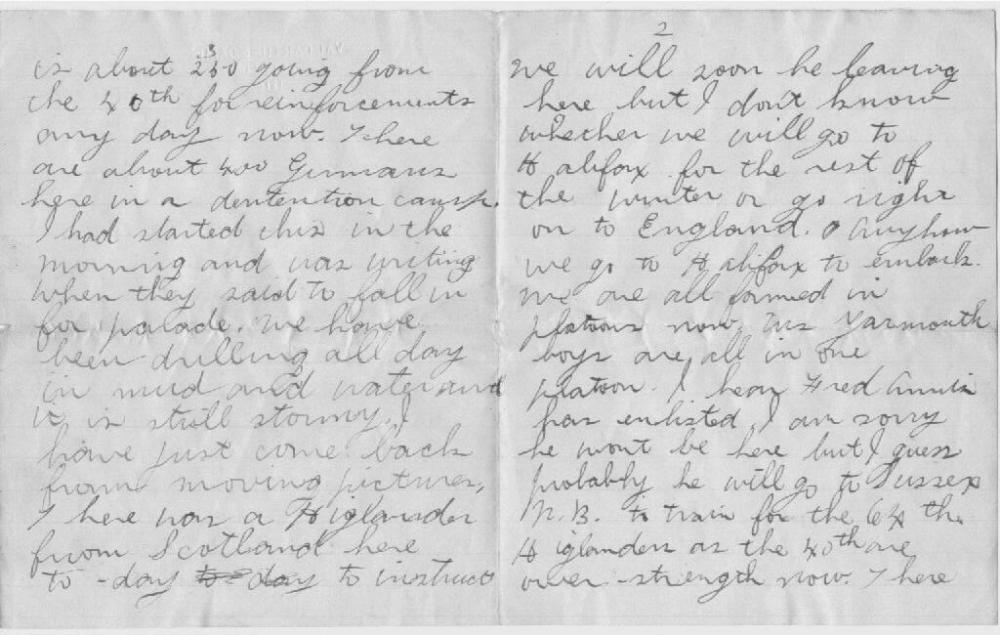 2
we will soon be leaving
here but I don't know
whether we will go to
Halifax for the rest of
the winter or go right
on to England. Anyhow
we go to Halifax to embark.
We are all formed in
platoons now. Us Yarmouth
boys are all in one
platoon. I hear Fred
has enlisted. I am sorry
he wont be here but I guess
probably he will go to Sussex
N.B. to train for the 64 th.
Higlanders as the 40th are
over-strength now. There
3
is about 250 going from
the 40th for reinforcements
any day now. There
are about 400 Germans
here in a dentention camp.
I had started this in the
morning and was writing
when they said to fall in
for parade. We have
been drilling all day
in mud and water and
it is still stormy. I
have just come back
from moving pictures,
There was a Higlander
from Scotland here
to-day to-day to instruct